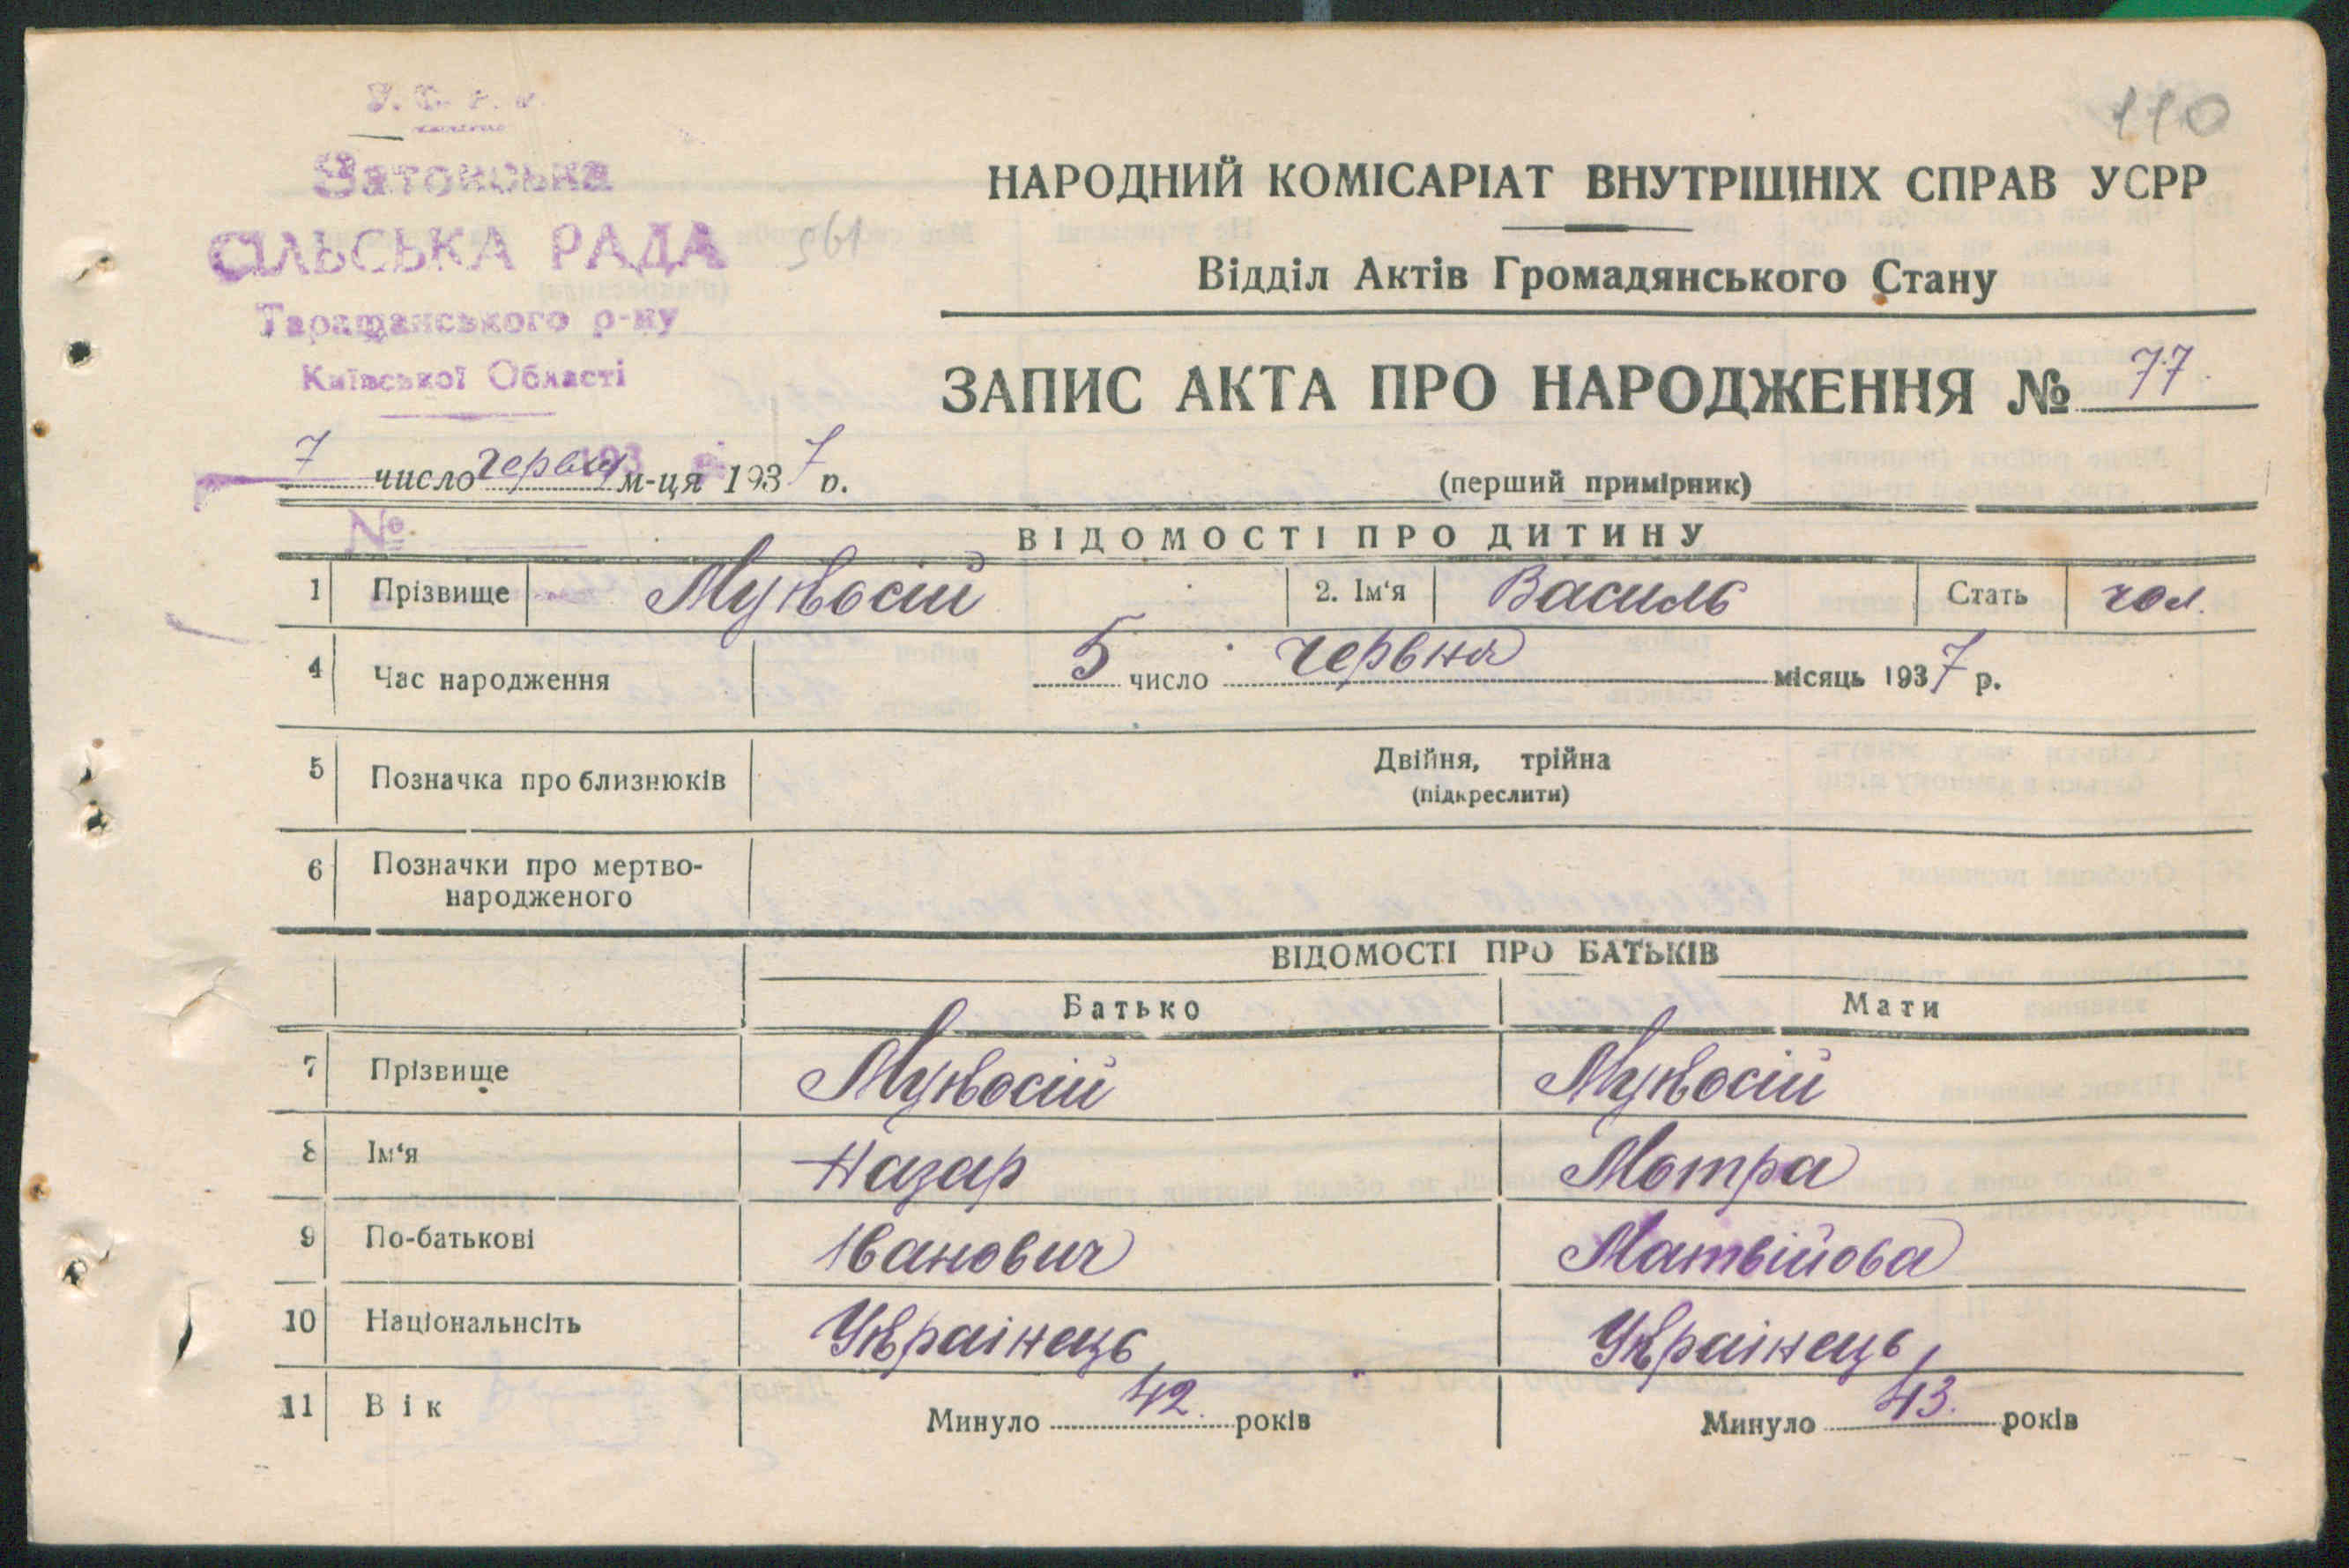 У. С. Р. Р.
110
Затонська
СІЛЬСЬКА РАДА
961
Таращанського р-ну
Київської Області
НАРОДНИЙ КОМІСАРІАТ ВНУТРІШНІХ СПРАВ УСРР
Відділ Актів Громадянського Стану
ЗАПИС АКТА ПРО НАРОДЖЕННЯ № 77
7 число червня м-ця 1937 р.
(перший примірник)
№
ВІДОМОСТІ ПРО ДИТИНУ
1 Прізвище Мукосій 2. Ім'я Василь Стать чол.
4 Час народження 5 число червня місяць 1937 р.
5 Позначка про близнюків Двійня, трійна
(підкреслити)
6 Позначки про мертво-
народженого
ВІДОМОСТІ ПРО БАТЬКІВ
Батько Мати
7 Прізвище Мукосій Мукосій
8 Ім'я Назар Мотра
9 По-батькові Іванович Матвійова
10 Національнсіть Украінець Украінець
11 Вік Минуло 42 років Минуло 43. років